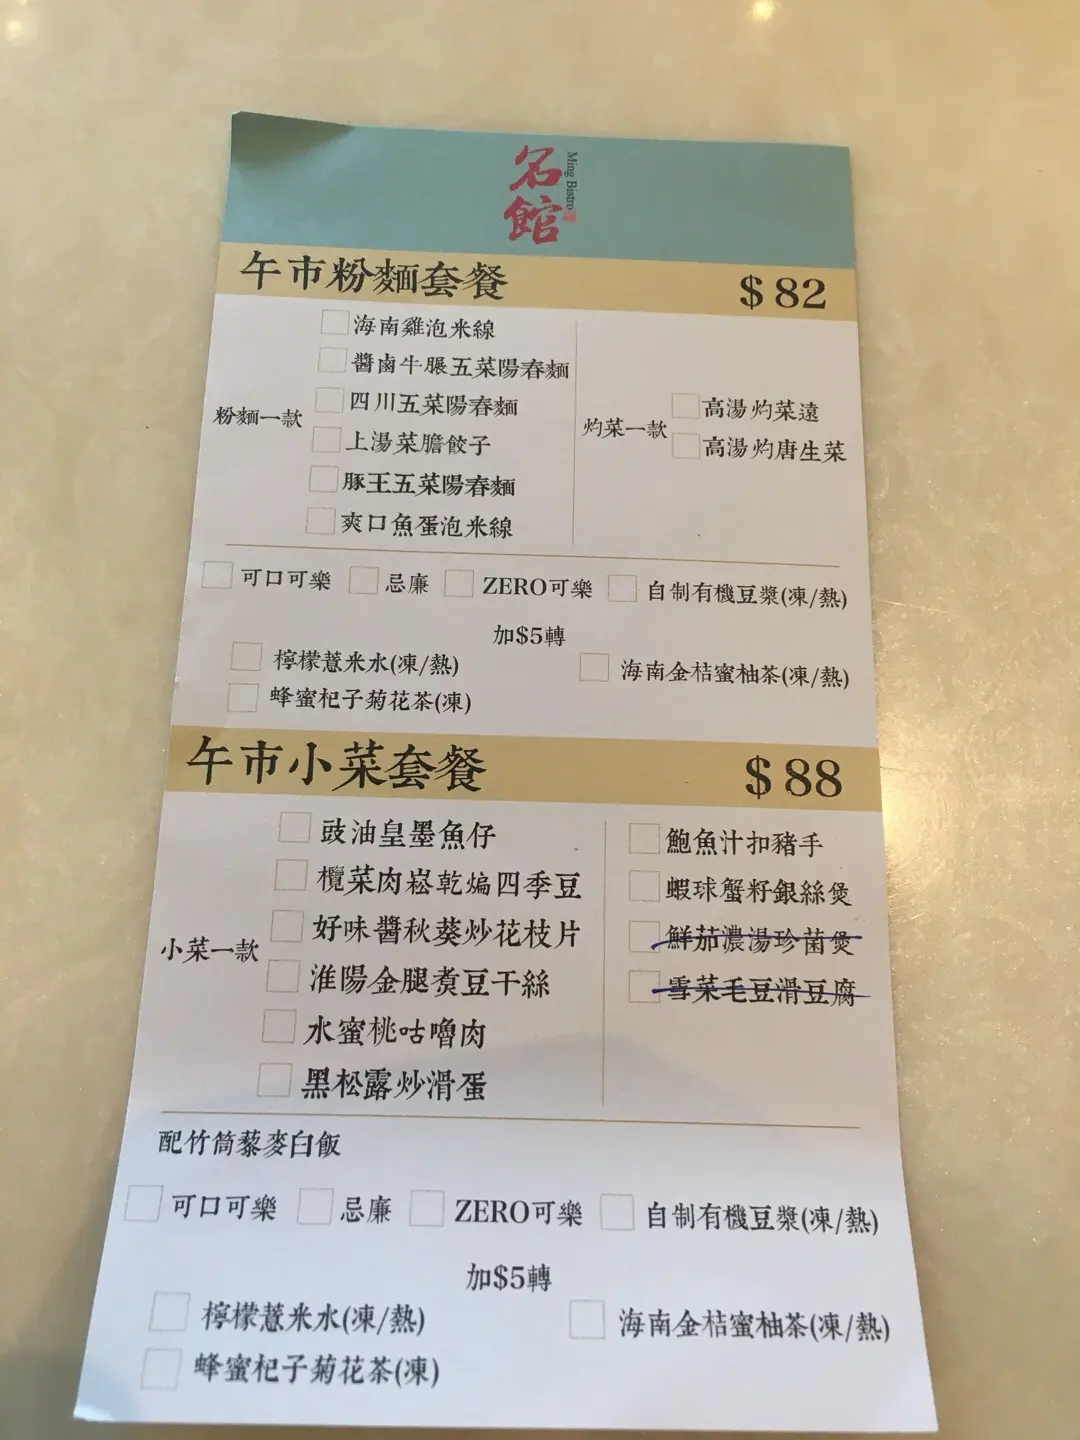 名館
Ming Bistro
午市粉麵套餐 $82
粉麵一款
海南雞泡米線
醬鹵牛𦟌五菜陽春麵
四川五菜陽春麵
上湯菜膽餃子
豚王五菜陽春麵
爽口魚蛋泡米線
灼菜一款
高湯灼菜遠
高湯灼唐生菜
可口可樂 忌廉 ZERO可樂 自制有機豆漿(凍/熱)
加$5轉
檸檬薏米水(凍/熱) 海南金桔蜜柚茶(凍/熱)
蜂蜜杞子菊花茶(凍)
午市小菜套餐 $88
小菜一款
豉油皇墨魚仔
欖菜肉崧乾煸四季豆
好味醬秋葵炒花枝片
淮陽金腿煑豆干絲
水蜜桃咕嚕肉
黑松露炒滑蛋
鮑魚汁扣豬手
蝦球蟹籽銀絲煲
鮮茄濃湯珍菌煲
雪菜毛豆滑豆腐
配竹筒藜麥白飯
可口可樂 忌廉 ZERO可樂 自制有機豆漿(凍/熱)
加$5轉
檸檬薏米水(凍/熱) 海南金桔蜜柚茶(凍/熱)
蜂蜜杞子菊花茶(凍)